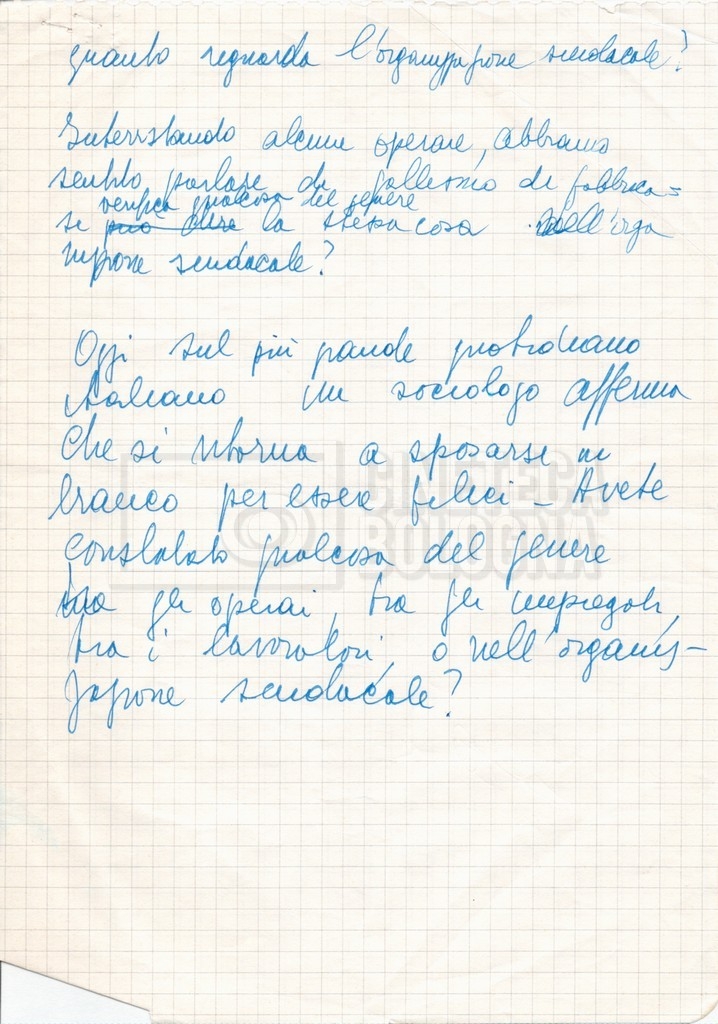 quanto riguarda l'organizzazione sindacale?
Intervistando alcune operaie, abbiamo
sentito parlare di gallismo di fabbrica =
verifica qualcosa del genere
si può dire la stessa cosa nell'orga
nizzazione sindacale?
Oggi sul più grande quotidiano
italiano un sociologo afferma
che si ritorna a sposarsi in
bianco per essere felici - Avete
constatato qualcosa del genere
tra gli operai, tra gli impiegati,
tra i lavoratori, o nell'organiz-
zazione sindacale?
CINETECA
BOLOGNA